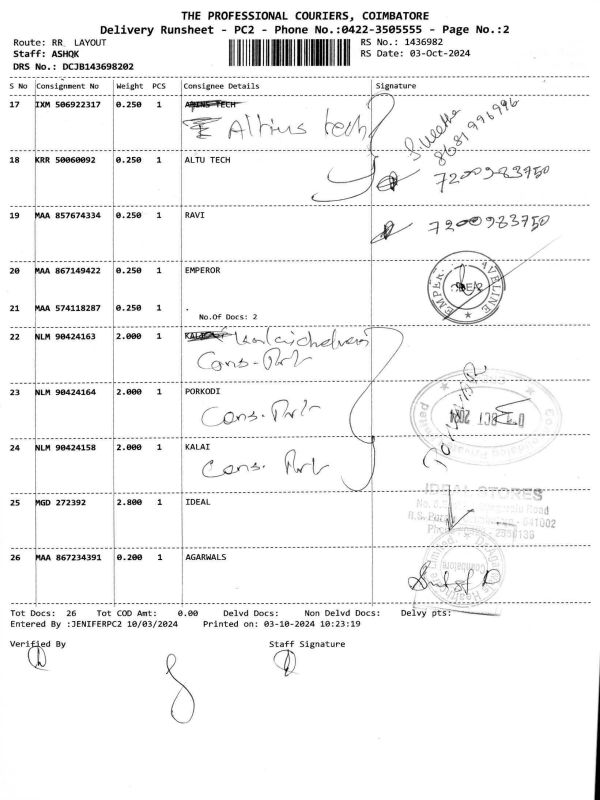 THE PROFESSIONAL COURIERS, COIMBATORE
Delivery Runsheet - PC2 - Phone No.:0422-3505555 - Page No.:2
Route: RR LAYOUT RS No.: 1436982
Staff: ASHQK RS Date: 03-Oct-2024
DRS No.: DCJB143698202
S No Consignment No Weight PCS Consignee Details Signature
17 IXM 506922317 0.250 1
Altius tech
8681996996
18 KRR 50060092 0.250 1 ALTU TECH 7200983750
19 MAA 857674334 0.250 1 RAVI 7200983750
20 MAA 867149422 0.250 1 EMPEROR
21 MAA 574118287 0.250 1 .
No.Of Docs: 2
22 NLM 90424163 2.000 1
23 NLM 90424164 2.000 1 PORKODI
24 NLM 90424158 2.000 1 KALAI
OCT 2024
25 MGD 272392 2.800 1 IDEAL
IDEAL STORES
26 MAA 867234391 0.200 1 AGARWALS
Tot Docs: 26 Tot COD Amt: 0.00 Delvd Docs: Non Delvd Docs: Delvy pts:
Entered By :JENIFERPC2 10/03/2024 Printed on: 03-10-2024 10:23:19
Verified By Staff Signature